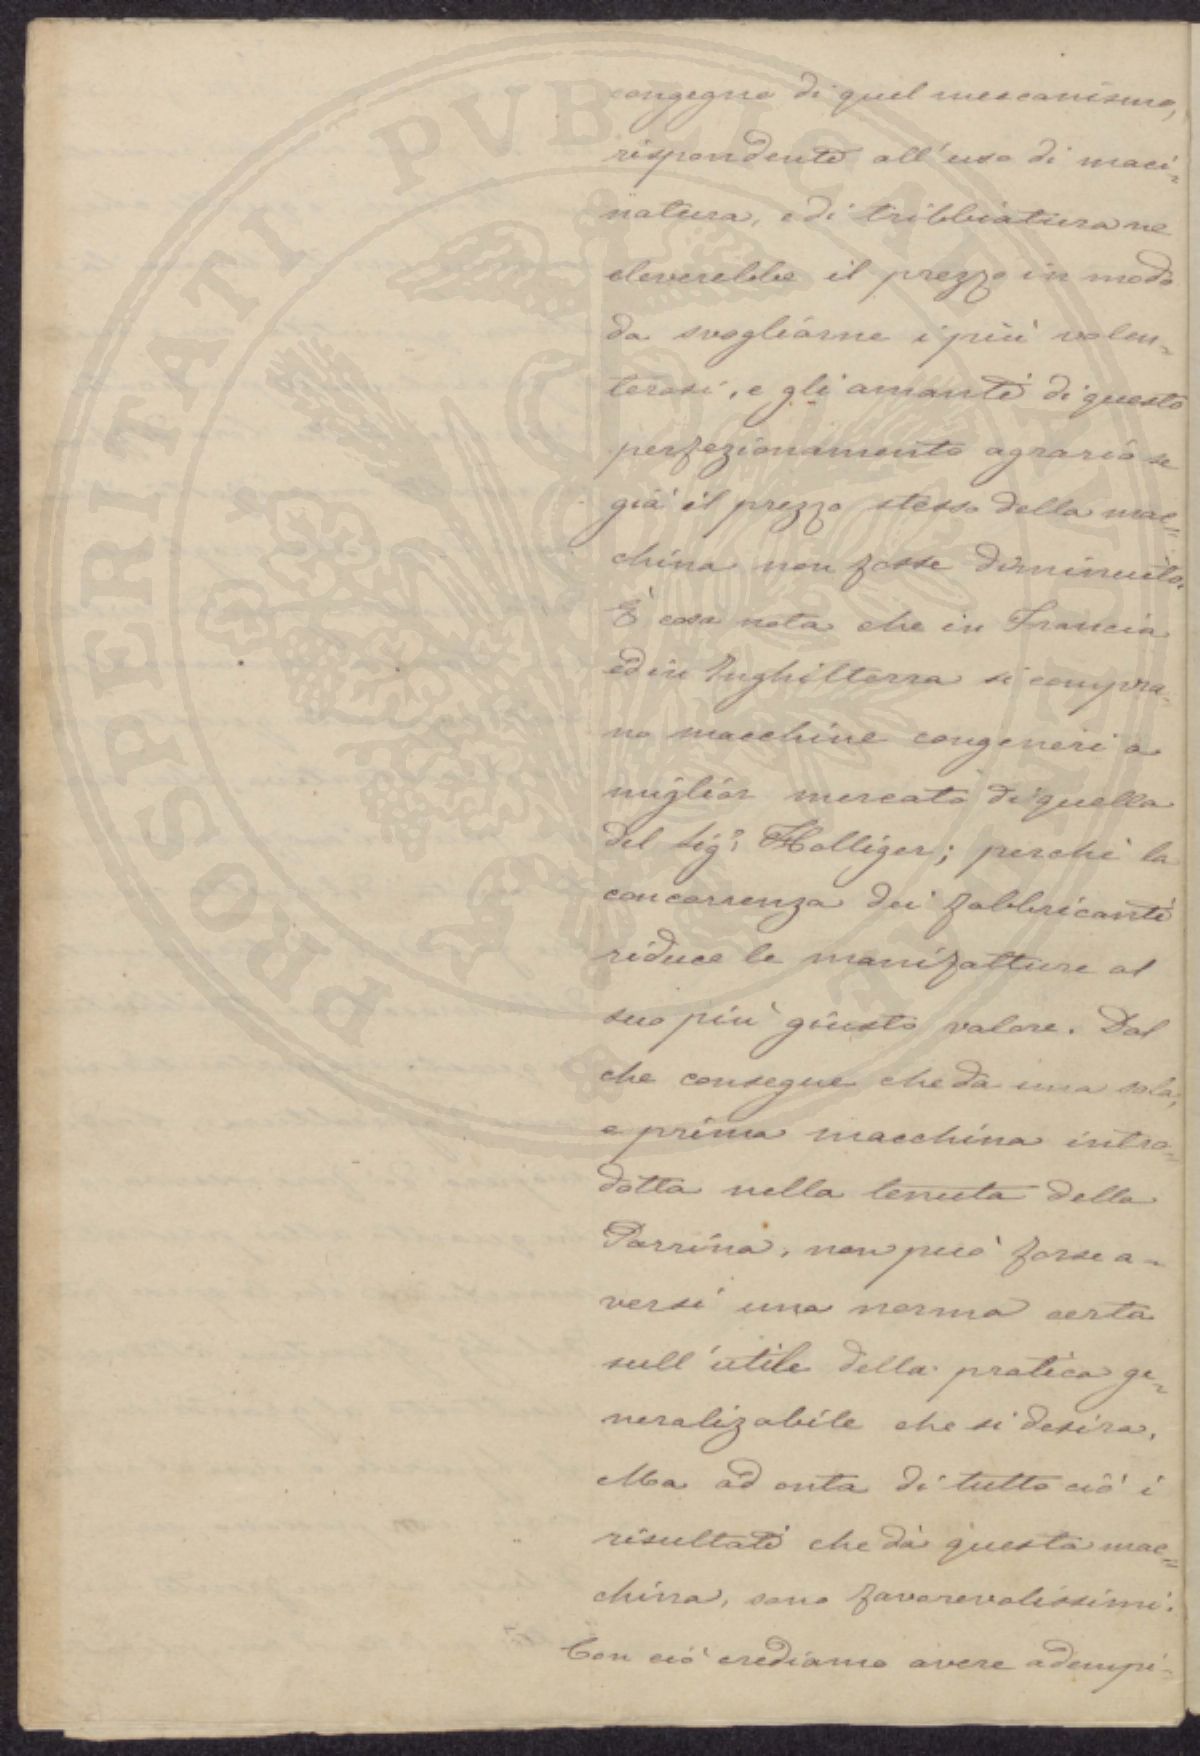 congegno di quel meccanismo,
rispondente all'uso di maci=
natura, e di tribbiatura ne
eleverebbe il prezzo in modo
da svogliarne i più volen=
terosi, e gli amanti di questo
perfezionamento agrario se
già il prezzo stesso della mac=
china non fosse diminuito.
È cosa nota che in Francia
ed in Inghilterra si compra=
no macchine congeneri a
miglior mercato di quella
del Sig.r Holliger; perché la
concorrenza dei fabbricanti
riduce le manifatture al
suo più giusto valore. Dal
che consegue che da una sola,
e prima macchina intro=
dotta nella tenuta della
Parrina, non può forse a=
versi una norma certa
sull'utile della pratica ge=
neralizabile che si desira.
Ma ad onta di tutto ciò i
risultati che dà questa mac=
china, sono favorevolissimi.
Con ciò crediamo avere adempi=
PROSPERITATI PVBLICAE